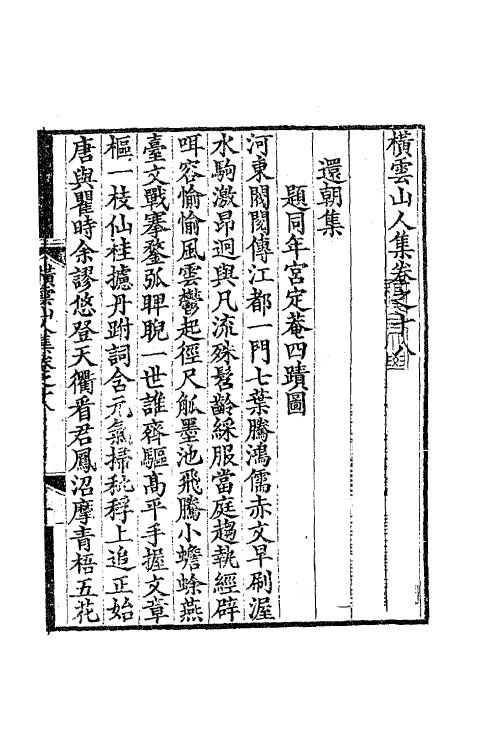 橫雲山人集卷之十八
還朝集
題同年宮定菴四蹟圖
河東閥閱傳江都一門七葉騰鴻儒赤文早刷渥
水駒激昂迥與凡流殊髫齡綵服當庭趨執經辟
咡容愉愉風雲鬱起徑尺觚墨池飛騰小蟾蜍燕
臺文戰搴鍪弧睥睨一世誰齊驅高平手握文章
樞一枝仙桂攄丹跗詞含元氣掃秕稃上追正始
唐與瞿時余謬悠登天衢看君鳳沼摩青梧五花
橫雲山人集卷之十八
一